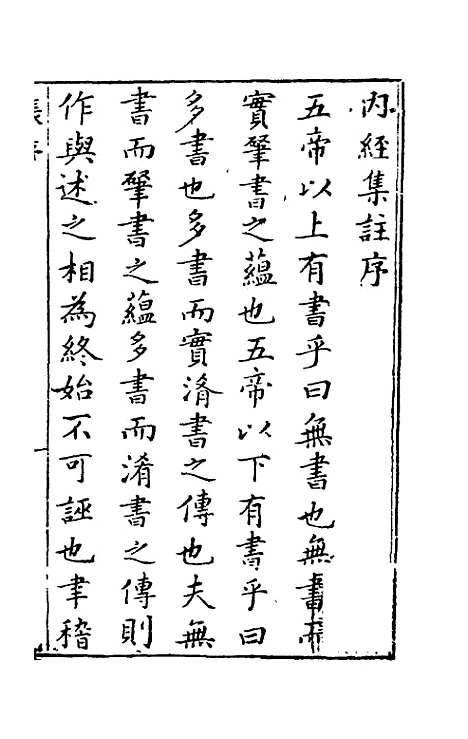 內經集註序
五帝以上有書乎曰無書也無書而
實肇書之蘊也五帝以下有書乎曰
多書也多書而實淆書之傳也夫無
書而肇書之蘊多書而淆書之傳則
作與述之相為終始不可誣也聿稽
張序
一